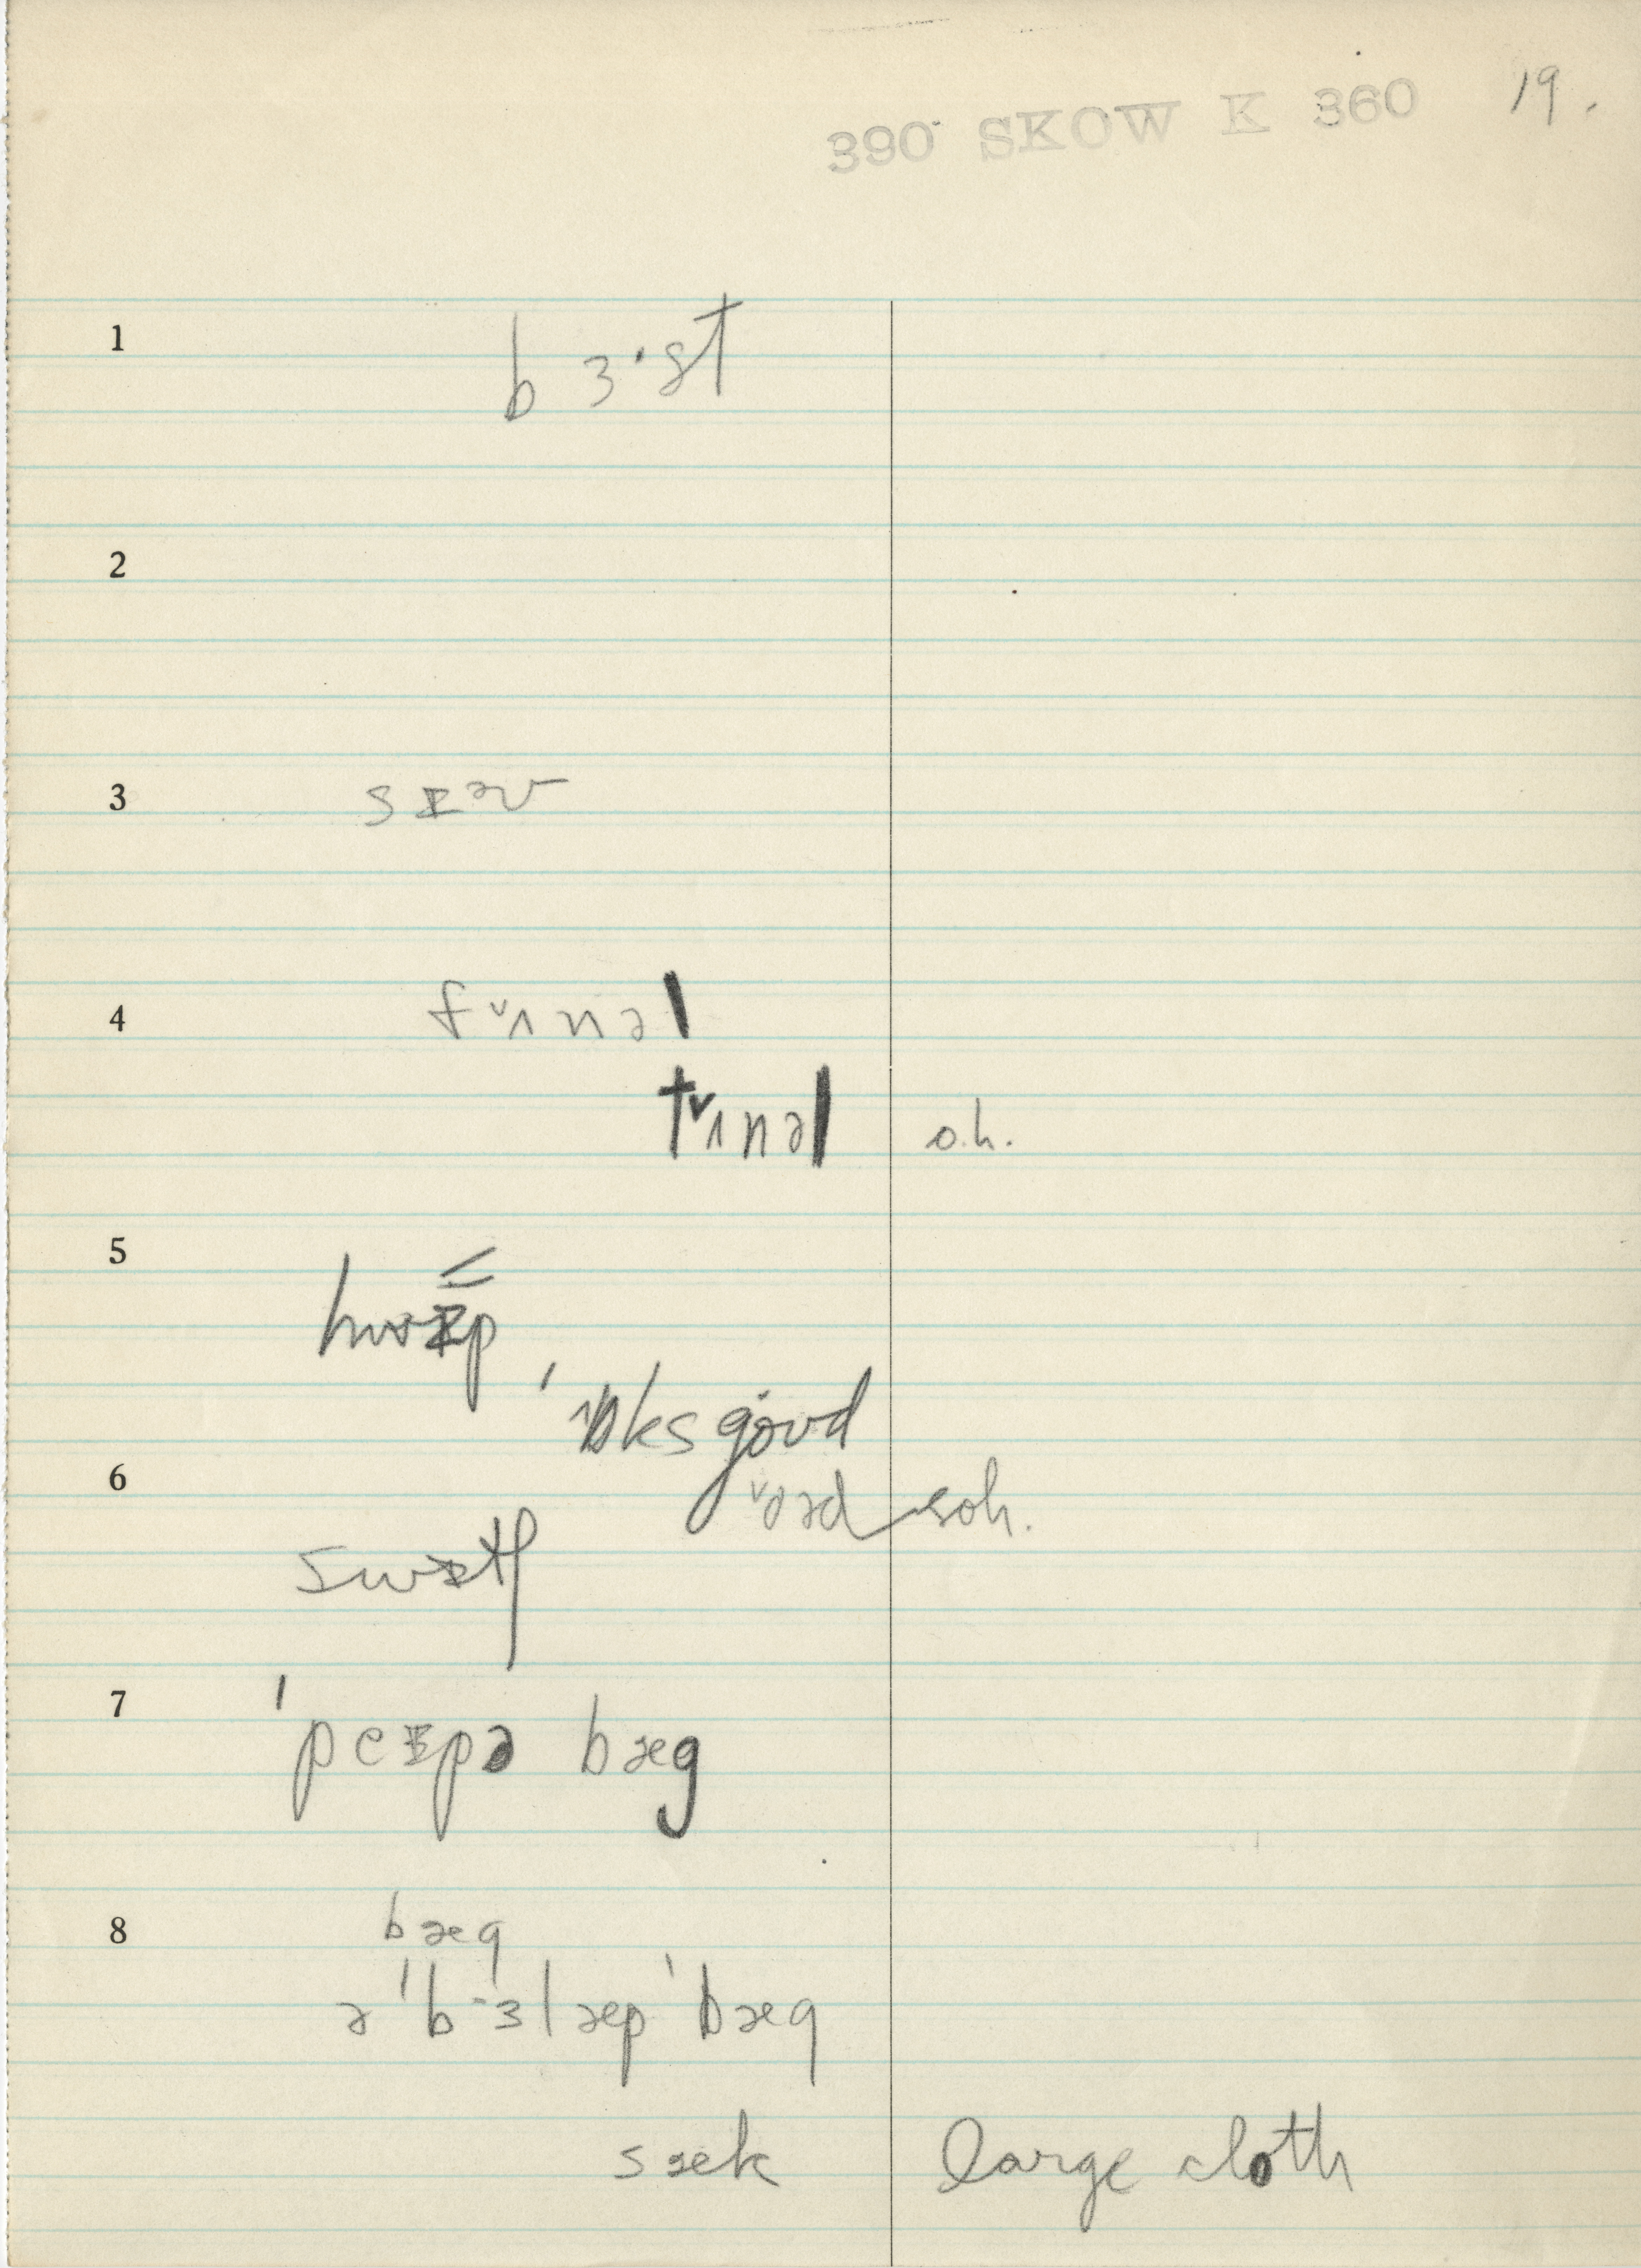 390 SKOW K 360 19.
1 b ɜ·st
2
3 sɪᵊv
4 fᵛʌnəl
tᵛʌnəl o.h.
5 hwɪp
ˈɒks goʊd
6 ᵛoəd soh.
swɪtʃ
7 ˈpeɪpə bæg
8 bæg
ə ˈbɜlæp ˈbæg
sæk large cloth